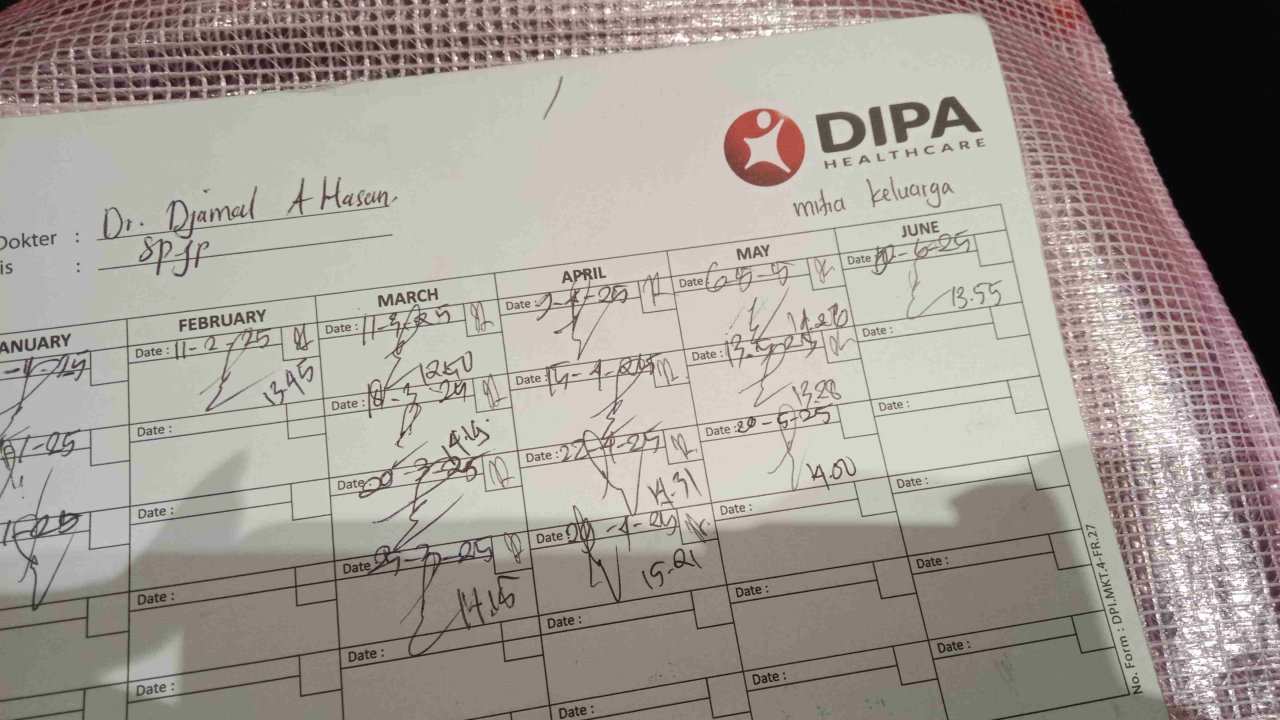 DIPA
HEALTHCARE
mitra keluarga
Dokter : Dr. Djamal A Hasan.
is : SpJP
ANUARY FEBRUARY MARCH APRIL MAY JUNE
Date : 11-2-25
13.45
Date :
Date :
Date :
Date :
Date : 11-3-25
12.50
Date : -3-25
14.15
Date : -3-25
Date : 25-3-25
14.15
Date :
Date : -4-25
Date : 15-4-25
Date : 22-4-25
14.31
Date : 29-4-25
15-21
Date :
Date :
Date : 6-5-
14.20
Date : 13-5-25
13.28
Date : 20-5-25
14.00
Date :
Date :
Date :
Date : -6-25
13.55
Date :
Date :
Date :
Date :
Date :
No. Form : DPI.MKT.4-FR.27